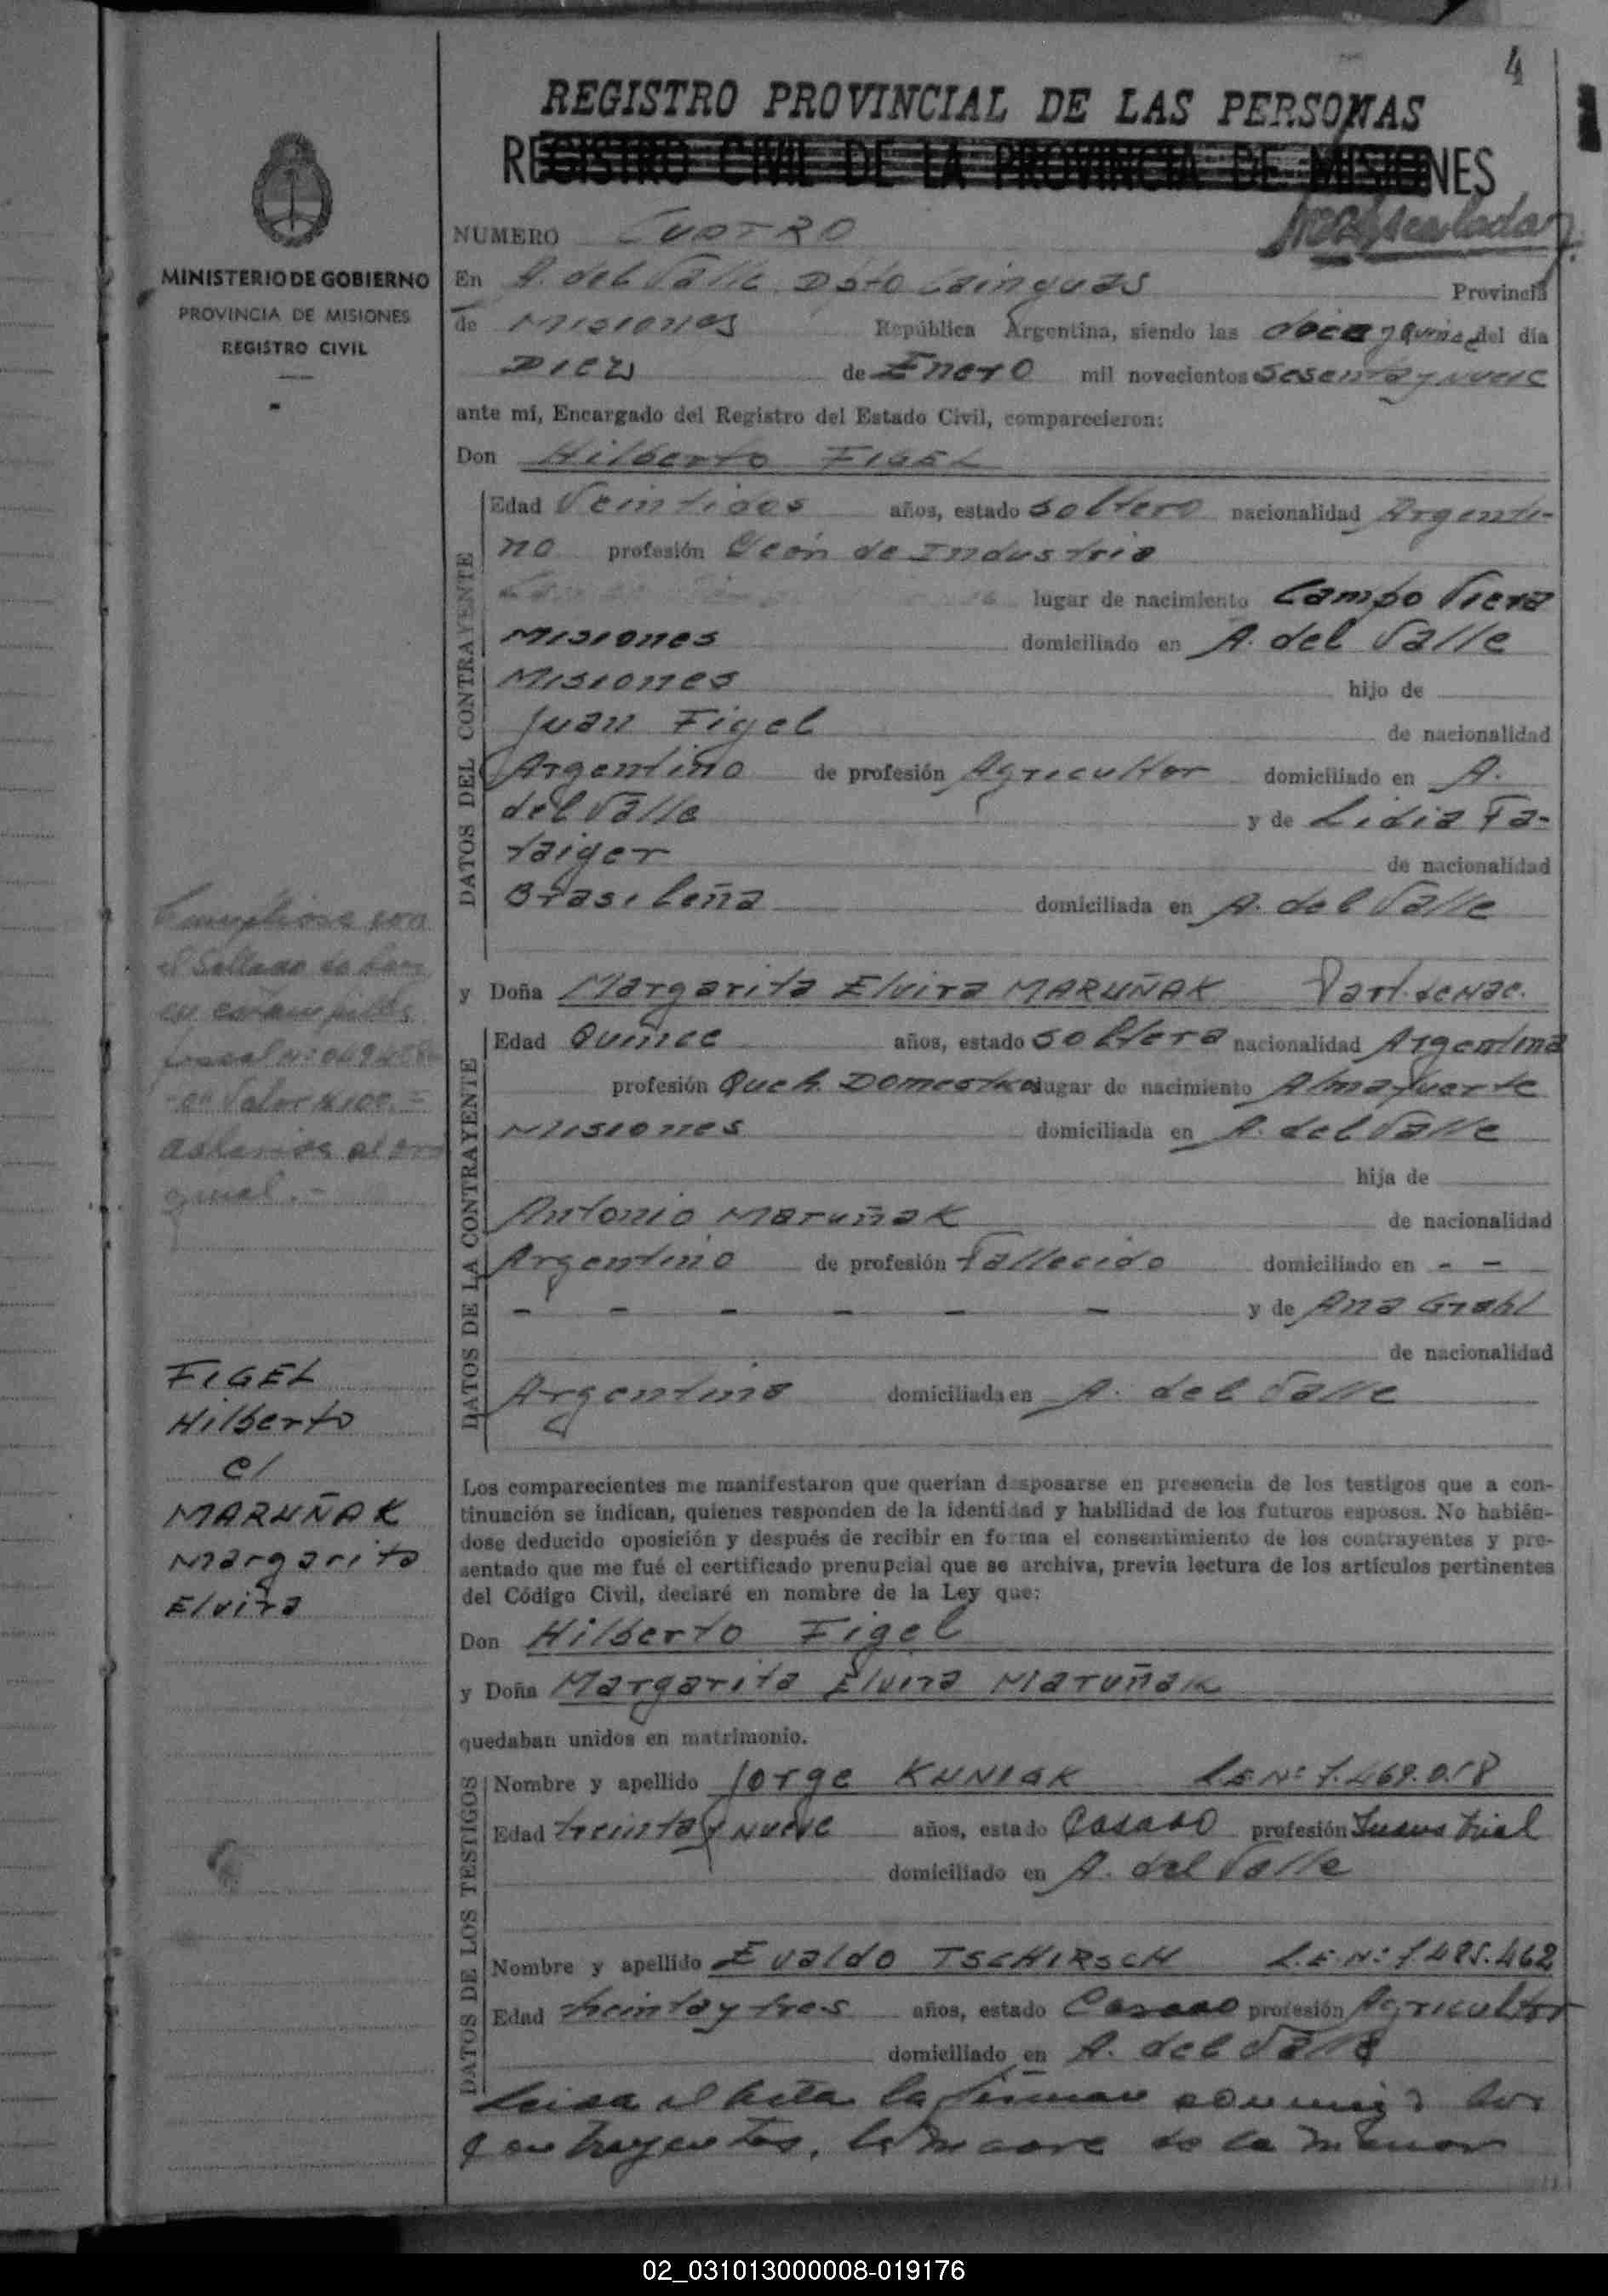 4
REGISTRO PROVINCIAL DE LAS PERSONAS
REGISTRO CIVIL DE LA PROVINCIA DE MISIONES
MINISTERIO DE GOBIERNO
PROVINCIA DE MISIONES
REGISTRO CIVIL
NUMERO CUATRO
En A. del Valle Dpto Cainguas Provincia
de Misiones República Argentina, siendo las doce y quince del día
Diez de Enero mil novecientos sesenta y nueve
ante mí, Encargado del Registro del Estado Civil, comparecieron:
Don Hilberto FIGEL
DATOS DEL CONTRAYENTE
Edad Veintidos años, estado soltero nacionalidad Argenti-
no profesión Peón de Industria
lugar de nacimiento Campo Viera
Misiones domiciliado en A. del Valle
Misiones hijo de
Juan Figel de nacionalidad
Argentino de profesión Agricultor domiciliado en A.
del Valle y de Lidia Ta-
taiger de nacionalidad
Brasileña domiciliada en A. del Valle
y Doña Margarita Elvira MARUÑAK Part. de Nac.
DATOS DE LA CONTRAYENTE
Edad Quince años, estado soltera nacionalidad Argentina
profesión Queh. Domesticos lugar de nacimiento Almafuerte
Misiones domiciliada en A. del Valle
hija de
Antonio Maruñak de nacionalidad
Argentino de profesión Fallecido domiciliado en - -
- - - - - - y de Ana Grahl
de nacionalidad
Argentina domiciliada en A. del Valle
Cumpliose con
el Sellado de Ley
en estampilla
fiscal Nº
Valor $ 100.=
adherida al ori
ginal.-
FIGEL
Hilberto
c/
MARUÑAK
Margarita
Elvira
Los comparecientes me manifestaron que querían desposarse en presencia de los testigos que a con-
tinuación se indican, quienes responden de la identidad y habilidad de los futuros esposos. No habién-
dose deducido oposición y después de recibir en forma el consentimiento de los contrayentes y pre-
sentado que me fué el certificado prenupcial que se archiva, previa lectura de los artículos pertinentes
del Código Civil, declaré en nombre de la Ley que:
Don Hilberto Figel
y Doña Margarita Elvira Maruñak
quedaban unidos en matrimonio.
DATOS DE LOS TESTIGOS
Nombre y apellido Jorge KUNIAK L.E Nº 7.469.018
Edad treinta y nueve años, estado Casado profesión Industrial
domiciliado en A. del Valle
Nombre y apellido Evaldo TSCHIRSCH L.E.Nº: 7.485.462
Edad treinta y tres años, estado Casado profesión Agricultor
domiciliado en A. del Valle
Leida el Acta la firman conmigo los
contrayentes, la madre de la menor
02_031013000008-019176